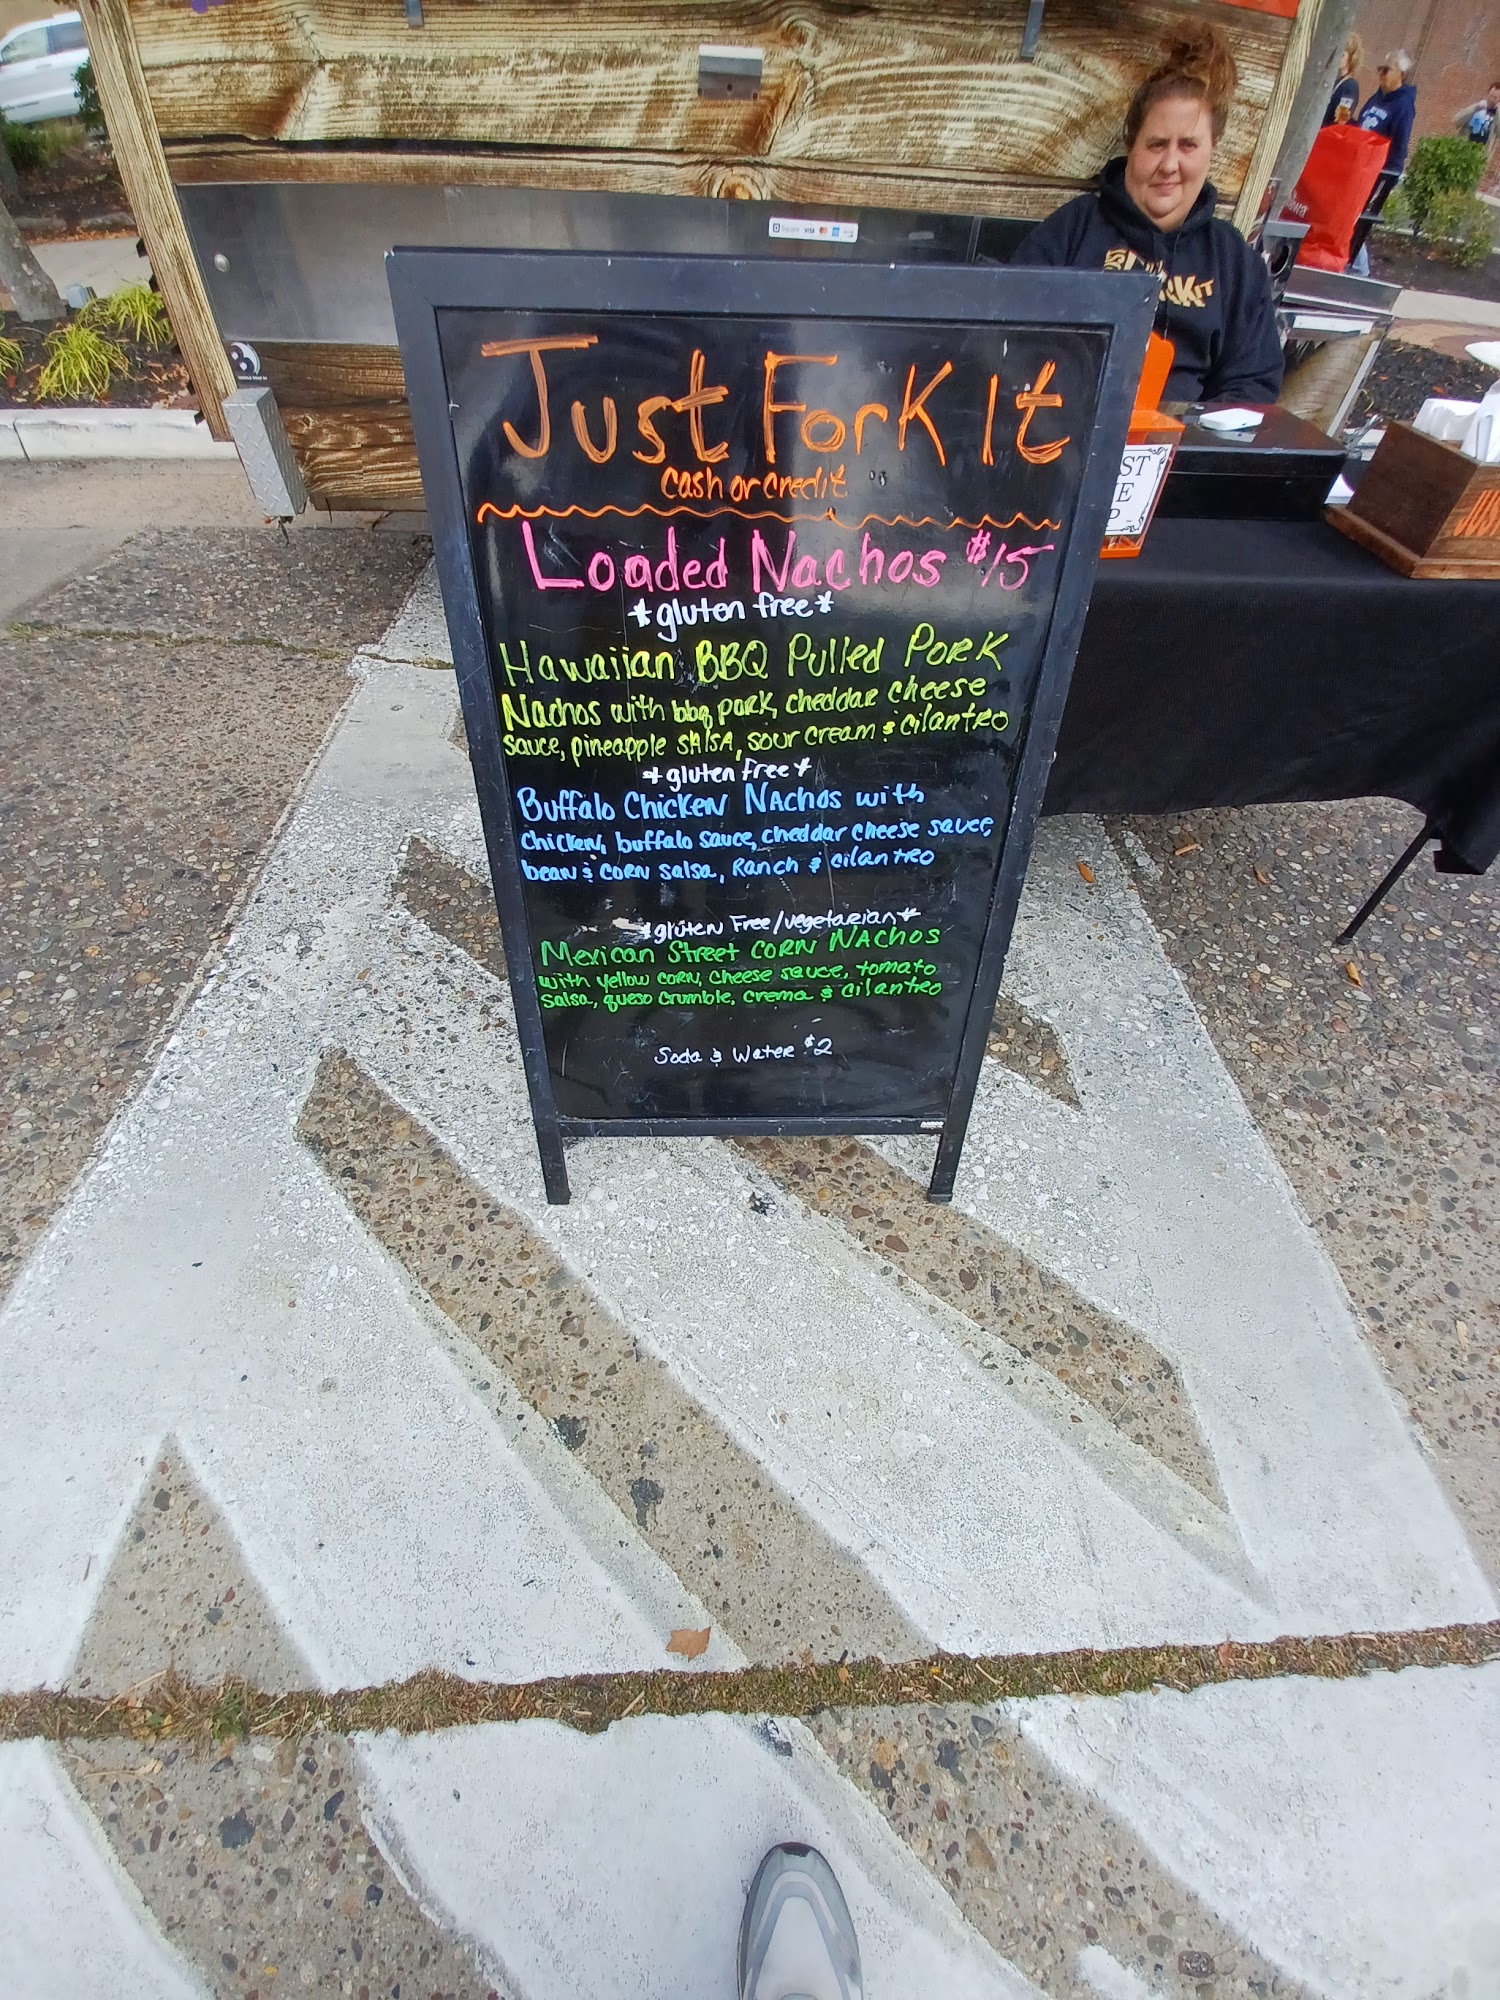 Just Fork It
cash or credit
Loaded Nachos $15
*gluten free*
Hawaiian BBQ Pulled Pork
Nachos with bbq pork, cheddar cheese
sauce, pineapple salsa, sour cream & cilantro
*gluten free*
Buffalo Chicken Nachos with
chicken, buffalo sauce, cheddar cheese sauce,
bean & corn salsa, Ranch & cilantro
*gluten free/vegetarian*
Mexican Street Corn Nachos
with yellow corn, cheese sauce, tomato
salsa, queso crumble, crema & cilantro
Soda & Water $2
Square VISA